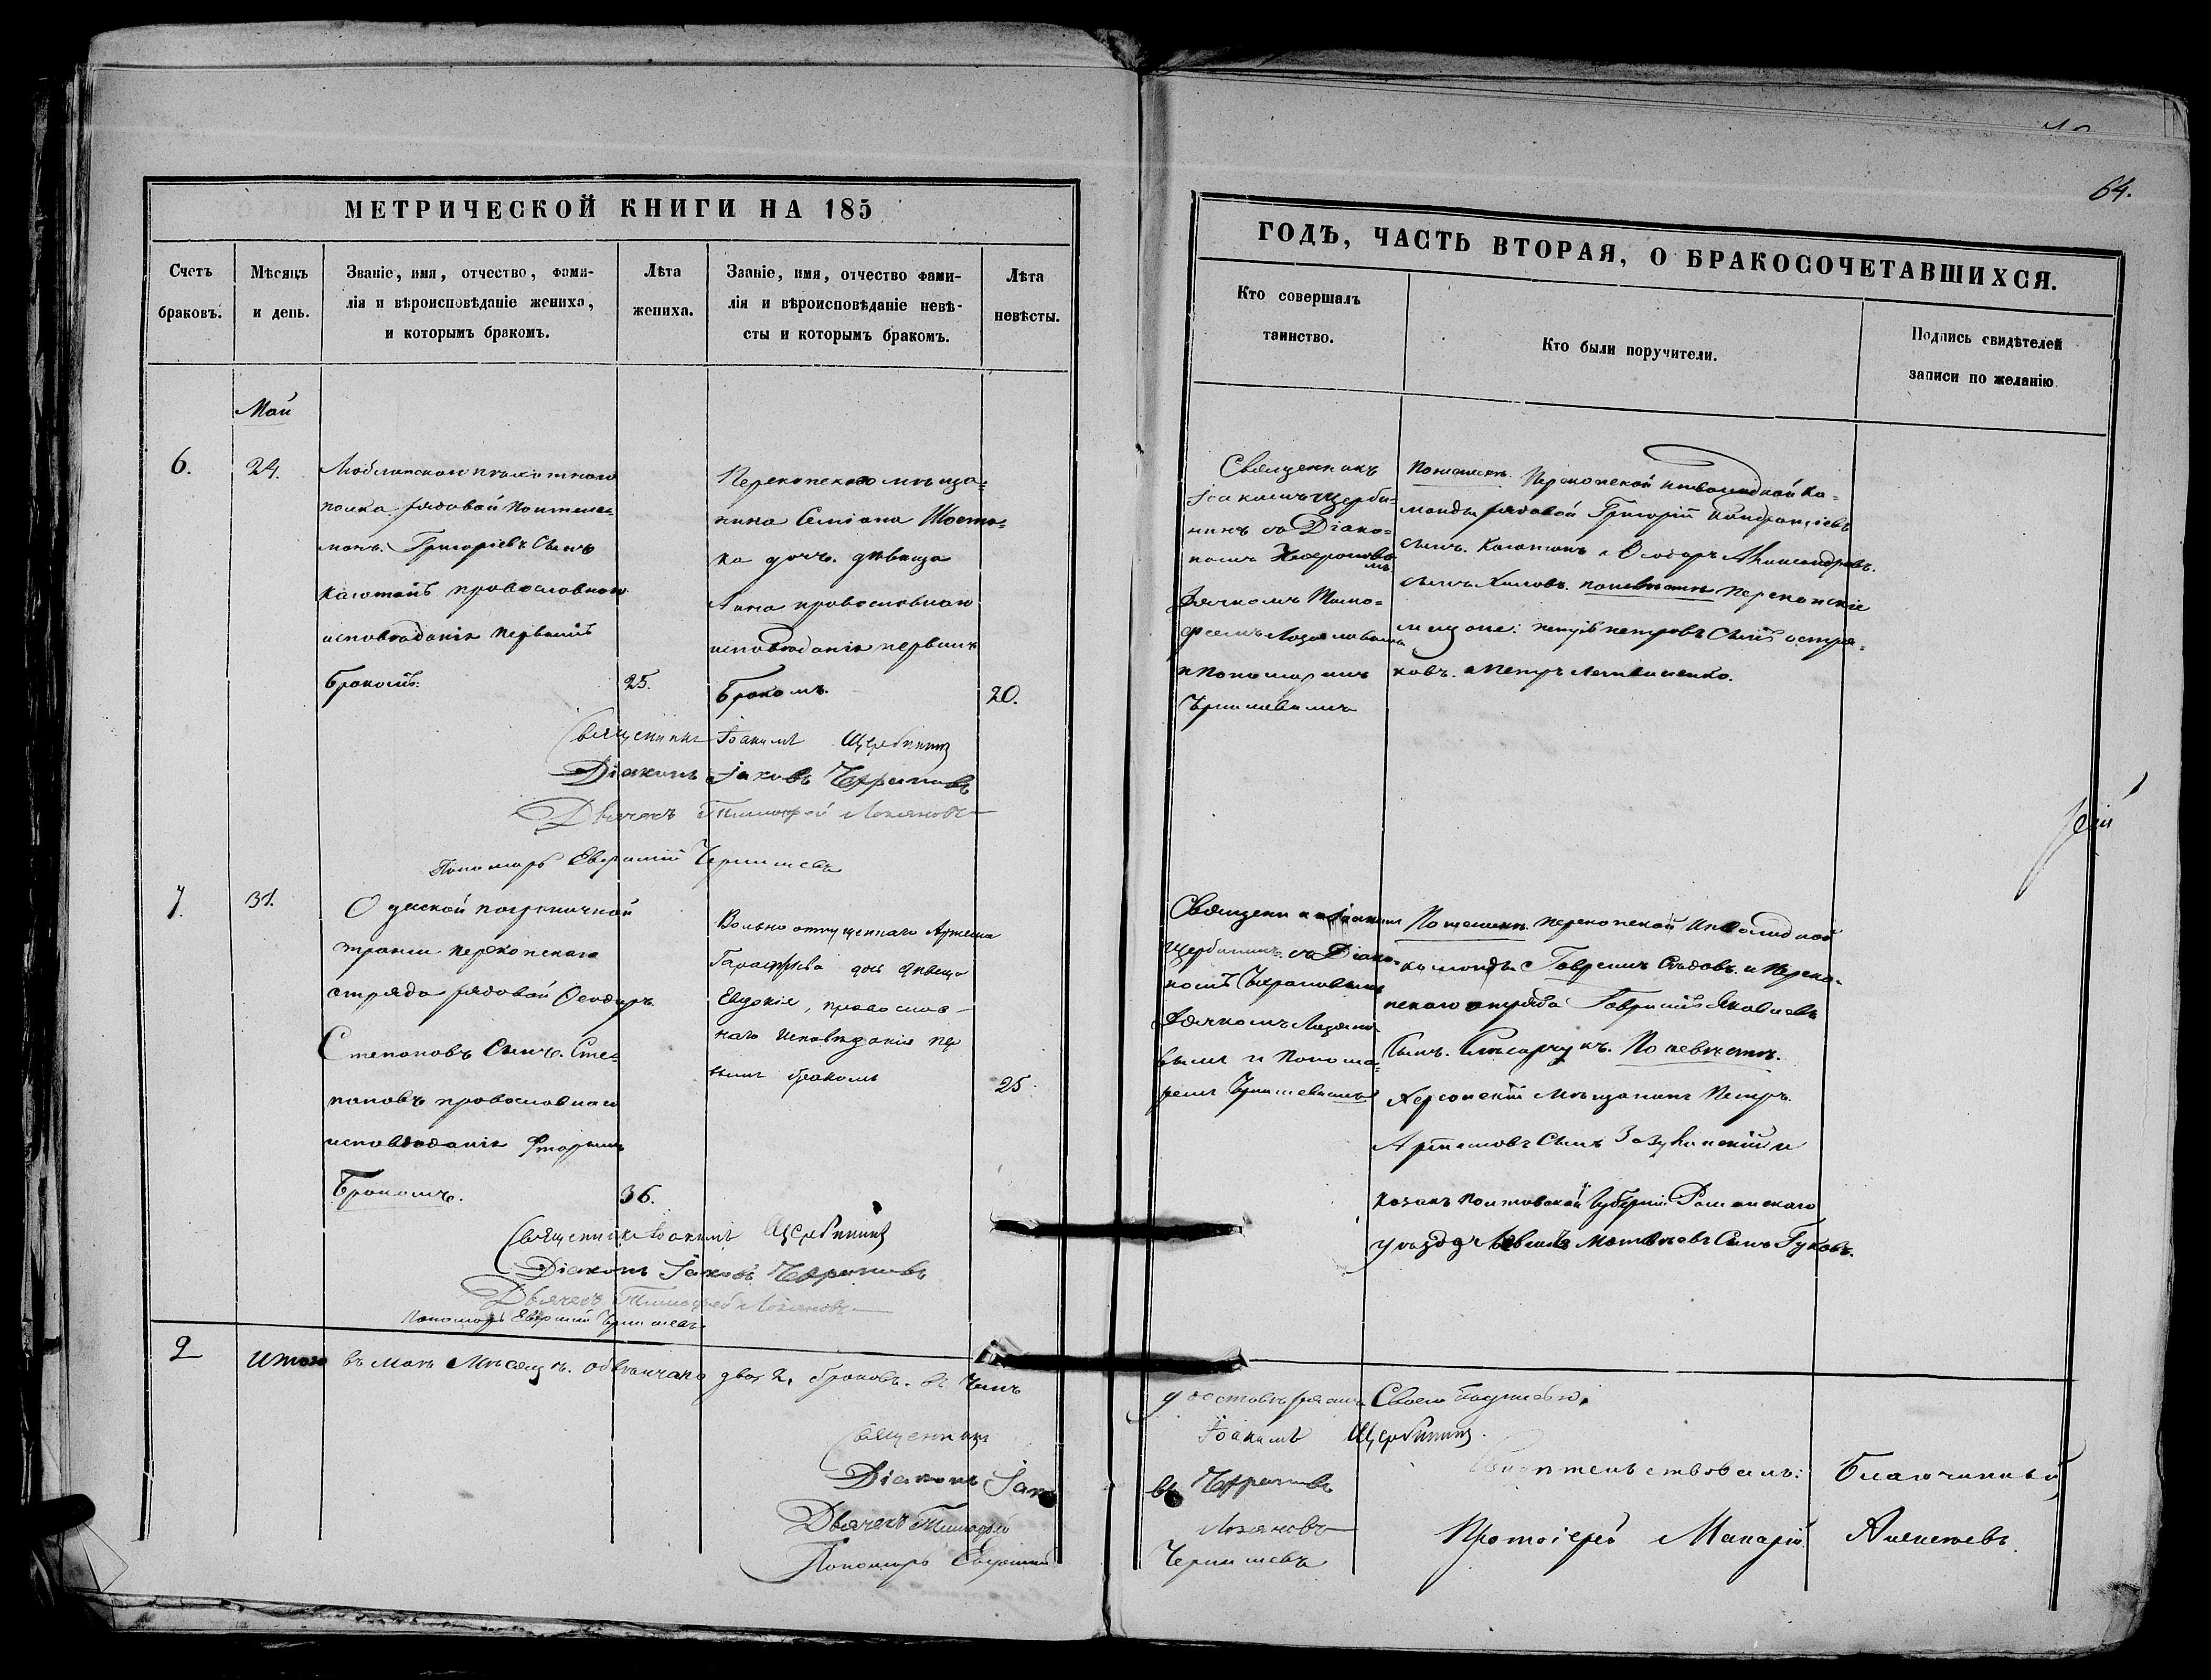 64.
МЕТРИЧЕСКОЙ КНИГИ НА 185
ГОДЪ, ЧАСТЬ ВТОРАЯ, О БРАКОСОЧЕТАВШИХСЯ.
Счетъ
браковъ.
Мѣсяцъ
и день.
Званіе, имя, отчество, фами-
лія и вѣроисповѣданіе жениха,
и которымъ бракомъ.
Лѣта
жениха.
Званіе, имя, отчество фами-
лія и вѣроисповѣданіе невѣ-
сты и которымъ бракомъ.
Лѣта
невѣсты.
Кто совершалъ
таинство.
Кто были поручители.
Подпись свидѣтелей
записи по желанію
Май
6.
24.
Люблинскаго пѣхотнаго
полка рядовой Понтеле-
монъ Григоріевъ Сынъ
православнаго
исповѣданія первымъ
бракомъ.
25.
Перекопскаго мѣща-
нина Симіона Шоста-
ка дочь дѣвица
Анна православнаго
исповѣданія первымъ
бракомъ.
20.
Священникъ
Іоакимъ Щерби-
нинъ съ Діако-
номъ
Дячкомъ Тимо-
феемъ
и Пономаремъ
Чернишевымъ
По женихѣ. Перекопской инвалидной ко-
манды рядовой Григорій
сынъ. и Ѳеодоръ Александровъ
сынъ по невѣстѣ Перекопскіе
мещане: петръ петровъ Сынъ остра-
ковъ и Петръ
Священникъ Іоакимъ Щербининъ
Діаконъ Іаковъ
Дьячекъ Тимофей Лозяновъ
Пономарь Евфимій Чернишевъ
7.
31.
Одеской пограничной
стражи перекопскаго
отряда рядовой Ѳеодоръ
Степановъ Сынъ. Сте-
пановъ православнаго
исповѣданія вторымъ
Бракомъ.
36.
Вольно отпущеннаго Артема
дочь дѣвица
Евдокія, православ-
наго исповѣданія пер
вымъ бракомъ
25
Священникъ Іоакимъ
Щербининъ съ Діако-
номъ
Дячкомъ Лозяно-
вымъ и Понома-
ремъ Чернишевымъ
По женихѣ. перекопской Инвалидной
команды Гавріилъ Сѣдовъ. и Переко-
пскаго отряда Гавріилъ Яковлевъ
Сынъ. По невѣстѣ.
Херсонскій мѣщанинъ Петръ.
Артемовъ Сынъ и
Козакъ Полтавской Губерніи Роменскаго
уѣзда Матвѣевъ Сынъ Гуковъ.
Священникъ Іоакимъ Щербининъ
Діаконъ Іаковъ
Дьячекъ Тимофей Лозяновъ
Пономарь Евфимій Чернишевъ
2
Итого въ маѣ Мѣсяцѣ. обвѣнчано два 2. браковъ. въ чемъ
удостовѣряемъ Своею подписью.
Священникъ Іоакимъ Щербининъ.
Діаконъ Іаковъ
Дьячекъ Тимофей Лозяновъ
Пономарь Евфимій Чернишевъ
Свидѣтельствовалъ: Благочинный
Протоіерей Макарій Алексѣевъ.